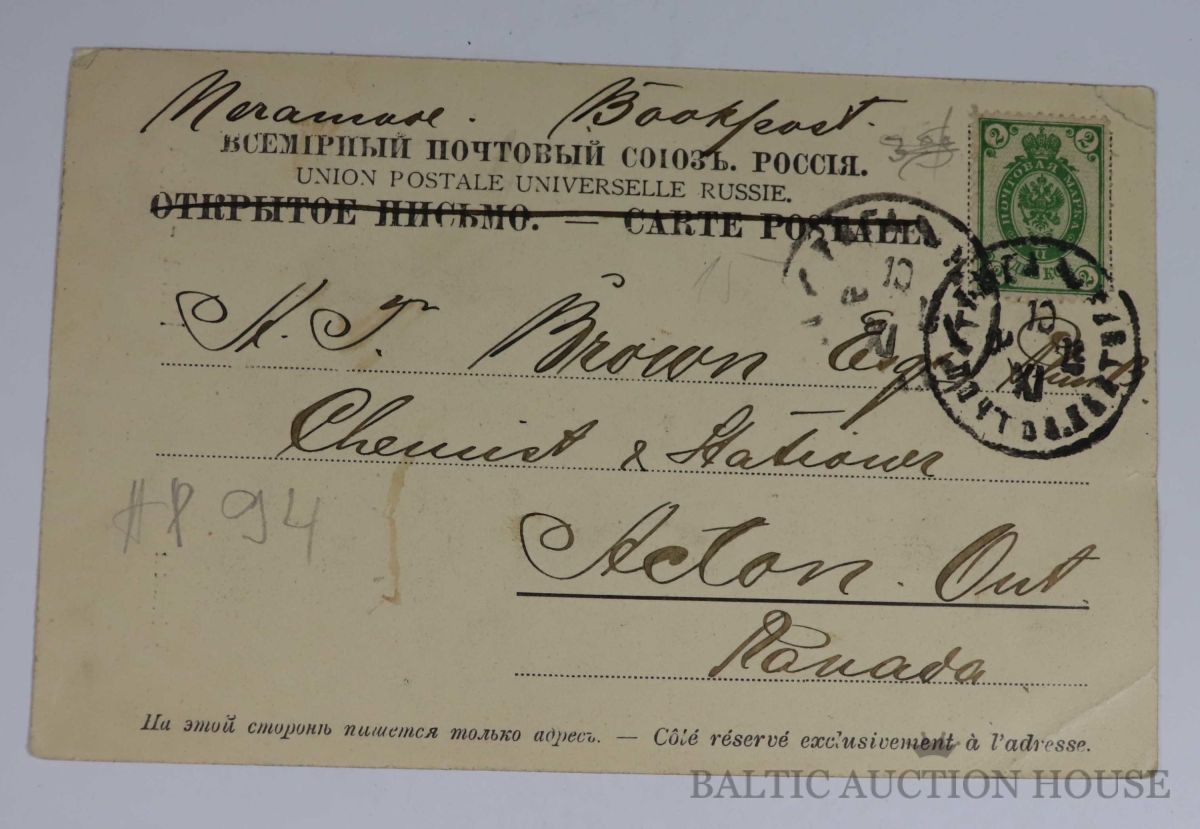 Bookpost.
ВСЕМІРНЫЙ ПОЧТОВЫЙ СОЮЗЪ. РОССІЯ.
UNION POSTALE UNIVERSELLE RUSSIE.
ОТКРЫТОЕ ПИСЬМО. — CARTE POSTALE.
2 2
ПОЧТОВАЯ МАРКА
2
15
10
XI
10
XI
A. T. Brown Esq
Chemist & Stationer
AP 94
Acton. Ont
Kanada
На этой сторонѣ пишется только адресъ. — Côté réservé exclusivement à l'adresse.
BALTIC AUCTION HOUSE